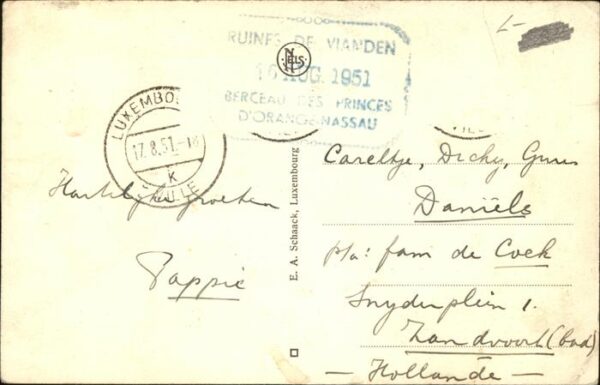 RUINES DE VIANDEN
16 AUG. 1951
BERCEAU DES PRINCES
D'ORANGE-NASSAU
NELS
LUXEMBO
17.8.51.-18
K
L-
Hartelijke groeten
Pappie
E. A. Schaack, Luxembourg
Careltje, Dicky, Guus
Daniëls
p/a: fam de Cock
Snyderplein 1.
Zandvoort (bad)
— Hollande —